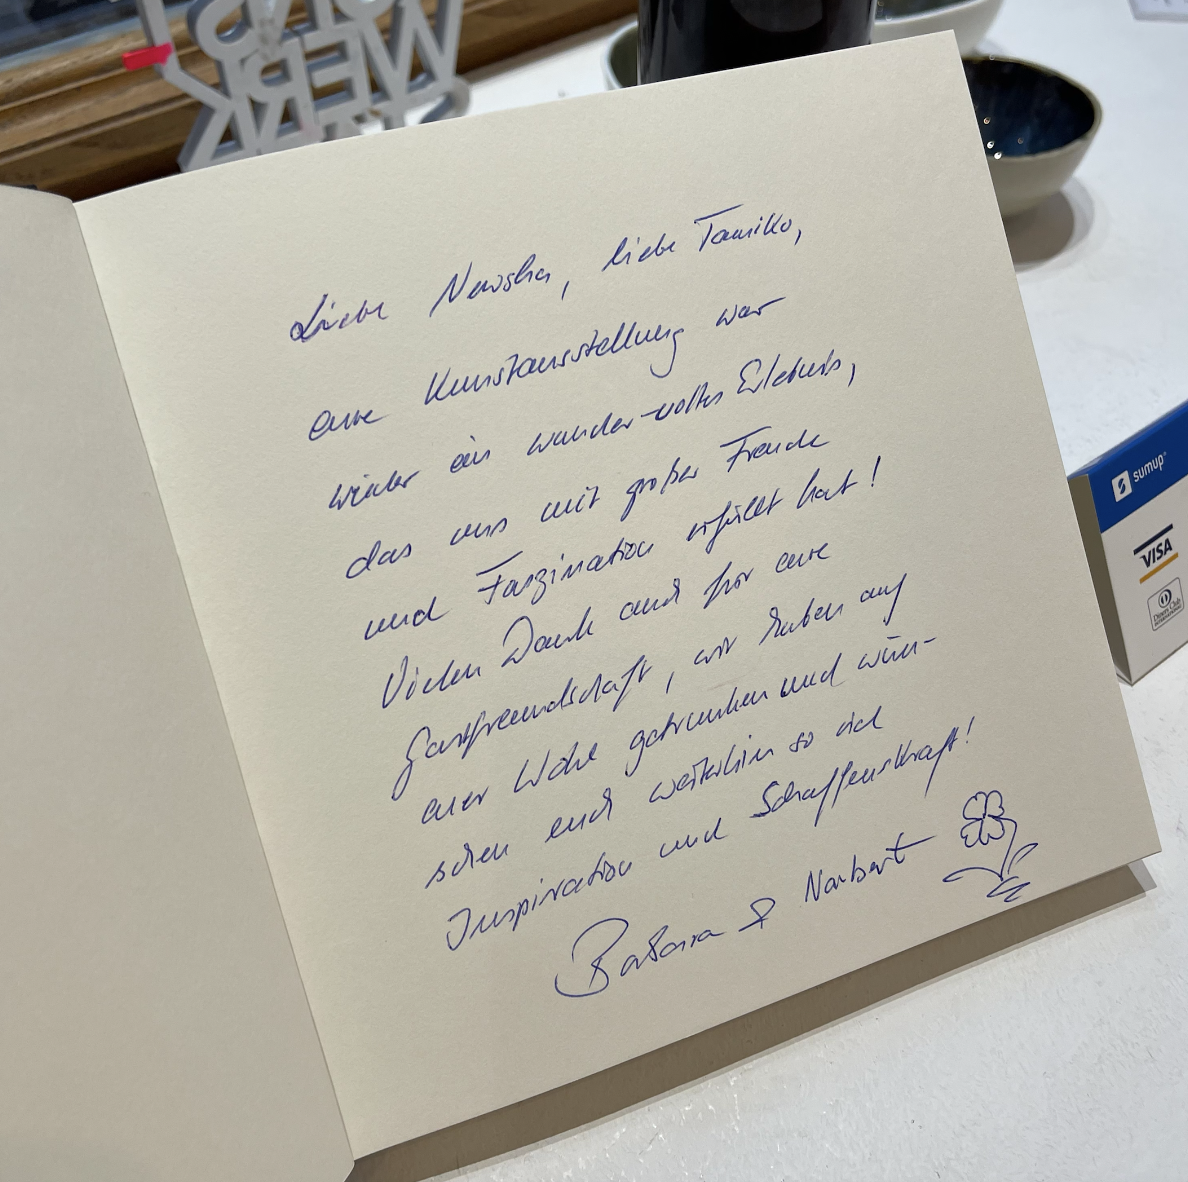 KUNST
WERK
Liebe Newsha, liebe Tamiko,
eure Kunstausstellung war
wieder ein wunder-volles Erlebnis,
das uns mit großer Freude
und Faszination erfüllt hat!
Vielen Dank auch für eure
Gastfreundschaft, wir haben auf
euer Wohl getrunken und wün-
schen euch weiterhin so viel
Inspiration und Schaffenskraft!
Barbara & Norbert
sumup
VISA
Diners Club
INTERNATIONAL